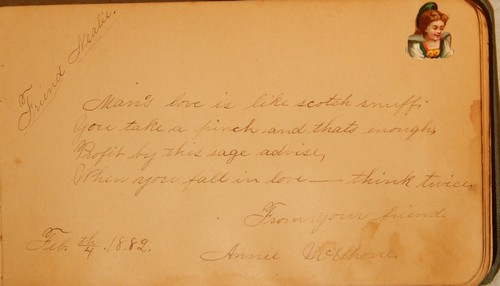 Friend Neatie.
Man's love is like scotch snuff.
You take a pinch and thats enough,
Profit by this sage advise,
When you fall in love — think twice.
From your friend
Feb. 4th. 1882.
Annie McElhone.